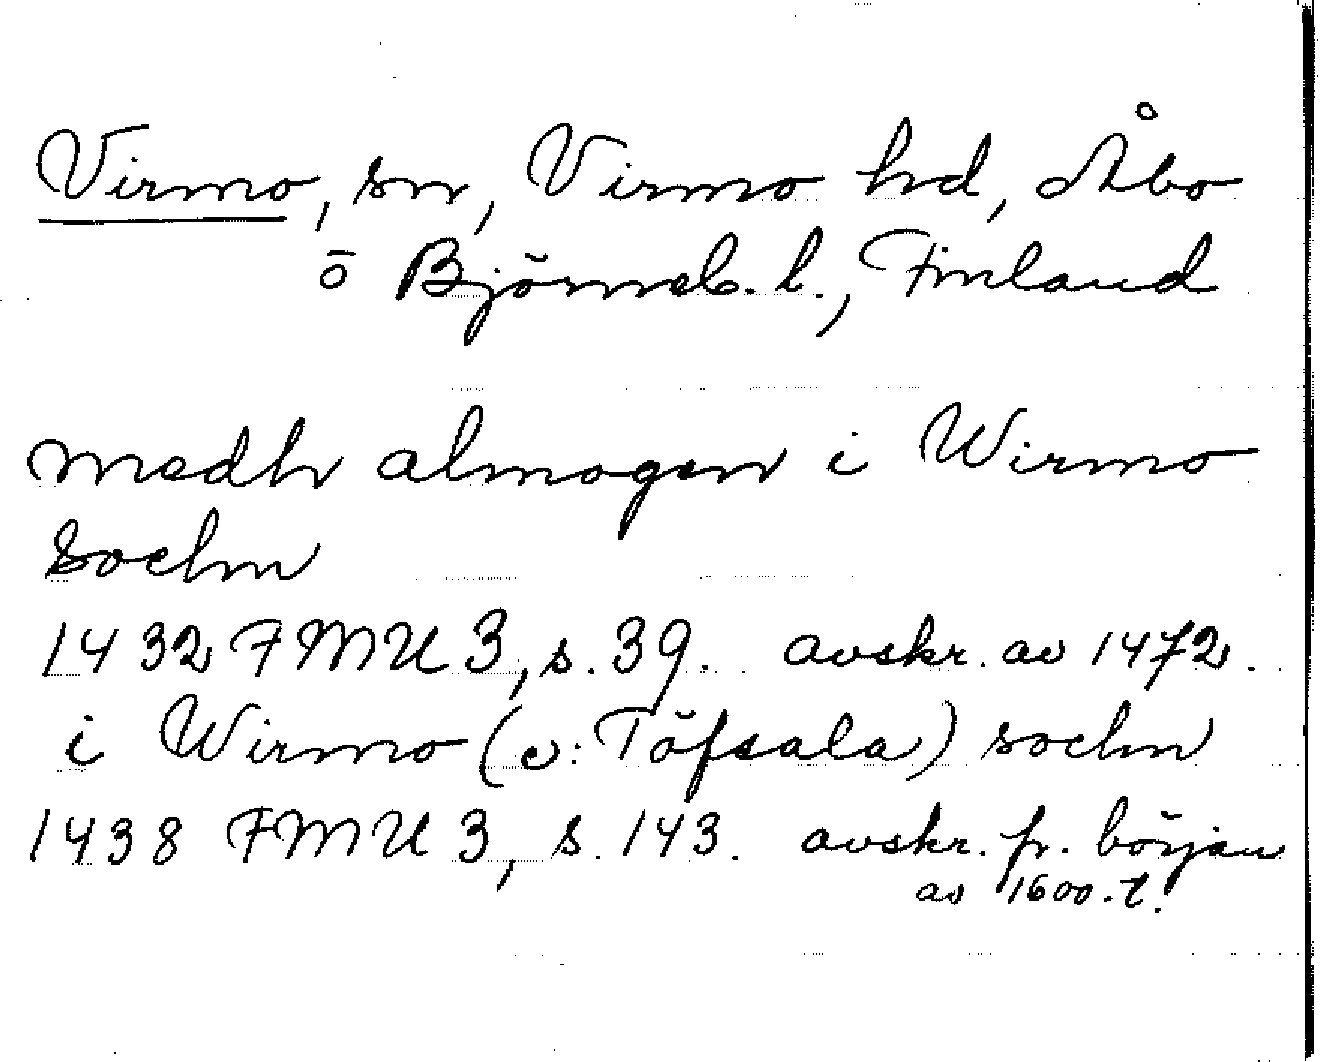 Virmo, sn, Virmo hd, Åbo
o Björneb. l., Finland
medh almogen i Wirmo
sochn
1432 FMU 3, s. 39. avskr. av 1472.
i Wirmo (v: Töfsala) sochn
1438 FMU 3, s. 143. avskr. fr. början
av 1600-t.